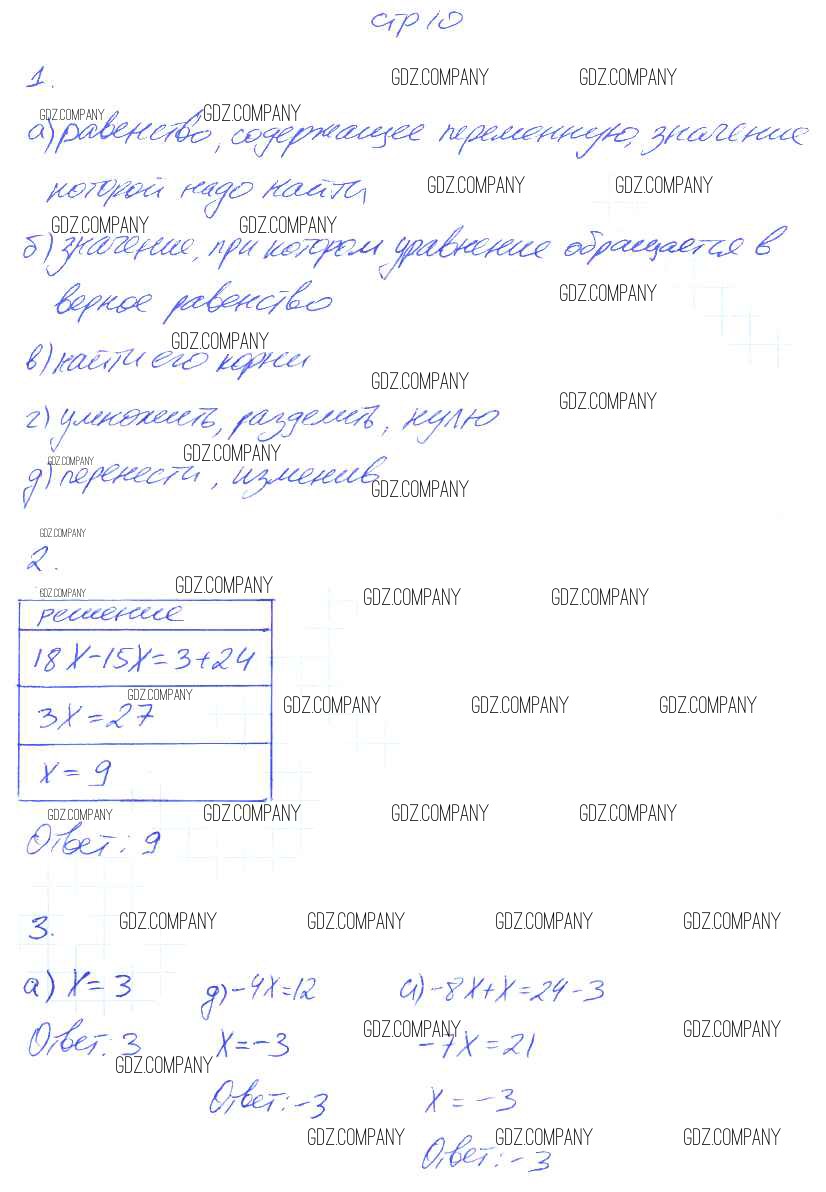 стр 10
1.
GDZ.COMPANY GDZ.COMPANY
GDZ.COMPANY GDZ.COMPANY
а) равенство, содержащее переменную, значение
которой надо найти
GDZ.COMPANY GDZ.COMPANY
GDZ.COMPANY GDZ.COMPANY
б) значение, при котором уравнение обращается в
верное равенство
GDZ.COMPANY
GDZ.COMPANY
в) найти его корни
GDZ.COMPANY
GDZ.COMPANY
г) умножить, разделить, нулю
GDZ.COMPANY GDZ.COMPANY
д) перенести, изменив
GDZ.COMPANY
GDZ.COMPANY
2.
GDZ.COMPANY GDZ.COMPANY GDZ.COMPANY GDZ.COMPANY
решение
18x-15x=3+24
GDZ.COMPANY GDZ.COMPANY GDZ.COMPANY GDZ.COMPANY
3x=27
x=9
GDZ.COMPANY GDZ.COMPANY GDZ.COMPANY GDZ.COMPANY
Ответ: 9
3.
GDZ.COMPANY GDZ.COMPANY GDZ.COMPANY GDZ.COMPANY
а) x=3 д) -4x=12 и) -8x+x=24-3
GDZ.COMPANY GDZ.COMPANY
Ответ: 3 x=-3 -7x=21
GDZ.COMPANY
Ответ: -3 x=-3
GDZ.COMPANY GDZ.COMPANY GDZ.COMPANY
Ответ: -3